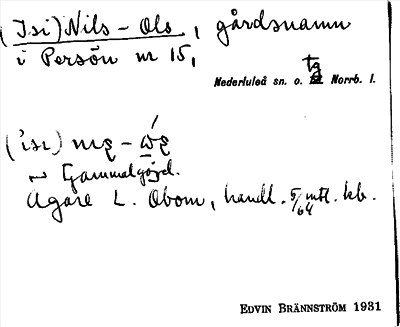 (Isi) Nils-Ols, gårdsnamn
i Persön nr 15,
Nederluleå sn. o. tg Norrb. l.
~ Gammelgård.
Ägare L. Obom, handl. 5/64 mtl. kb.
EDVIN BRÄNNSTRÖM 1931